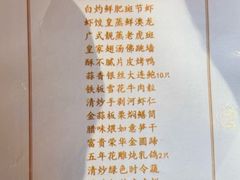 白灼鲜肥斑节虾
虾饺皇蒸鲜澳龙
广式靓蒸老虎斑
皇家翅汤佛跳墙
酥不腻片皮烤鸭
蒜香银丝大连鲍10只
铁板雪花牛肉粒
清炒手剥河虾仁
金蒜板栗焖鳝筒
腊味煨如意笋干
富贵荣华金圆蹄
五年花雕炖乳鸽2只
清炒绿色时令蔬